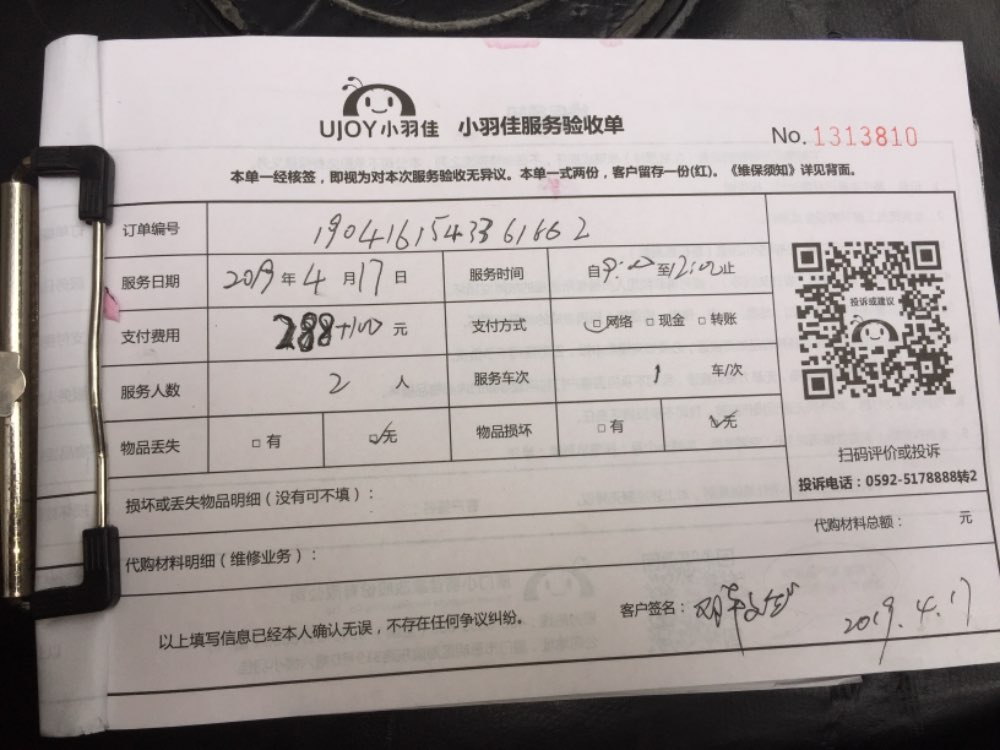 UJOY小羽佳 小羽佳服务验收单
No. 1313810
本单一经核签，即视为对本次服务验收无异议。本单一式两份，客户留存一份(红)。《维保须知》详见背面。
订单编号 1904161543361662
服务日期 2019年4月17日 服务时间 自9:00至12:00止
支付费用 288+100元 支付方式 □网络 □现金 □转账
服务人数 2人 服务车次 1车/次
物品丢失 □有 □无 物品损坏 □有 □无
投诉或建议
扫码评价或投诉
投诉电话：0592-5178888转2
损坏或丢失物品明细（没有可不填）：
代购材料明细（维修业务）： 代购材料总额： 元
以上填写信息已经本人确认无误，不存在任何争议纠纷。 客户签名： 2019.4.17